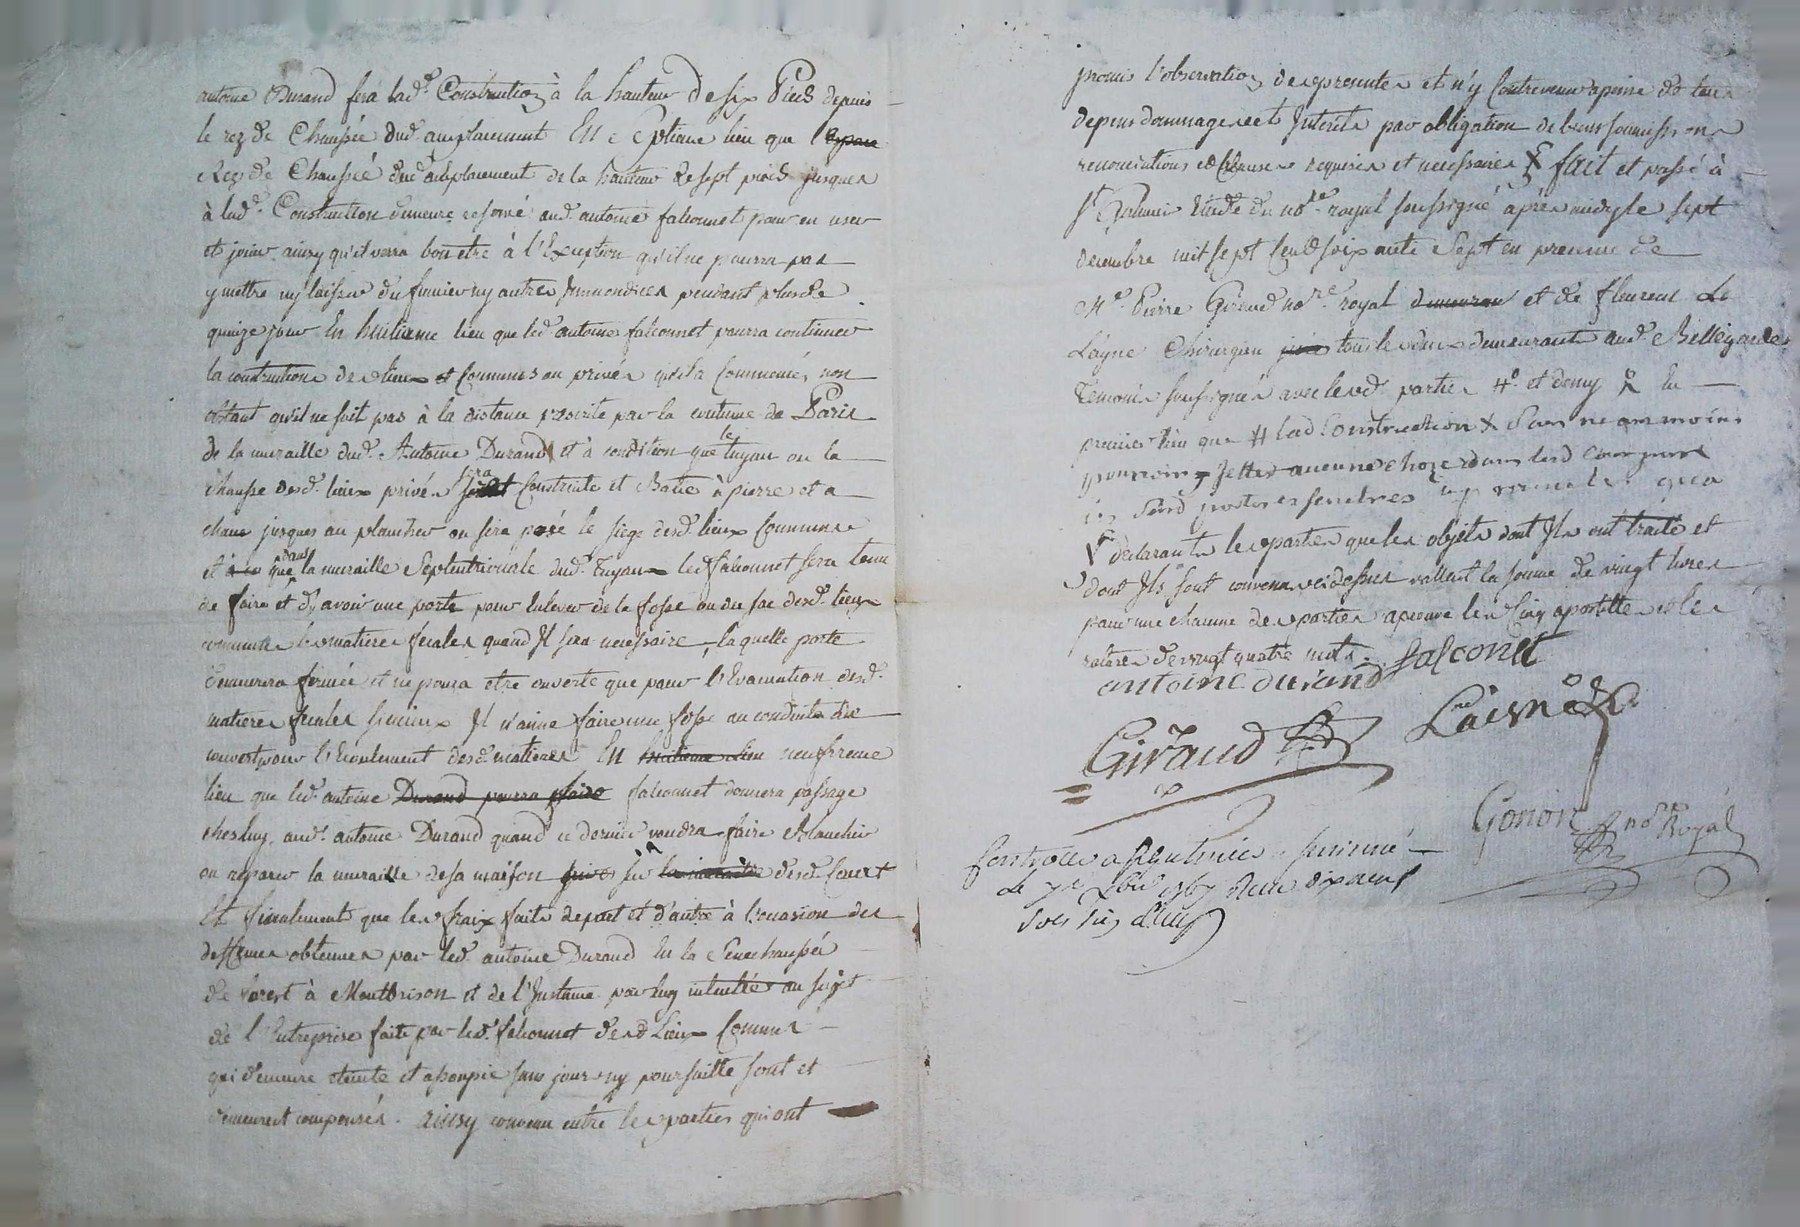 antoine Durand fera lad.e Construction à la hauteur de six Pieds depuis
le rez de Chaussée dud. amplacement En septieme lieu que l'espace
Rez de Chaussée dud amplacement de la hauteur de sept pieds jusques
à lad.e Construction demeure reservé aud. antoine falconnet pour en user
et jouir ainsy qu'il verra bon etre à l'Exception qu'il ne pourra pas
y mettre ny laisser du fumier ny autres Immondices pendant plus de
quinze jour En huitieme lieu que led. antoine falconnet pourra continuer
la construction des lieux et Communs ou privés qu'il a Commencés, non
obstant qu'il ne soit pas à la distance prescrite par la coutume de Paris
de la muraille dud. Antoine Durand et à condition que le tuyau ou la
chausse desd. lieux privés sera Construite et Batie à pierre et a
chaux jusques au plancher ou sera posé le siege desd. lieux Communs
et à que dans la muraille Septentrionale dud. Tuyau led falconnet sera tenu
de faire et d'y avoir une porte pour Enlever de la fosse ou du sac desd. lieux
communs les matieres fecales quand Il sera necessaire, laquelle porte
demeurera fermée et ne poura etre ouverte que pour l'Evacuation desd.
matieres fecales si mieux Il n'aime faire une fosse ou conduite
couvert pour l'Ecoulement desd. matieres En huitieme lieu neufvieme
lieu que led. antoine Durand pourra faire falconnet donnera passage
chez luy aud. antoine Durand quand ce dernier voudra faire Blanchir
ou reparer la muraille de sa maison sur la muraille desd. Court
Et finalement que les fraix faits de part et d'autre à l'occasion des
deffenses obtenues par led. antoine Durand En la Senechaussée
de forest à Montbrison et de l'Instance par luy intentée au sujet
de l'Entreprise faite par led. falconnet desd Lieux Communs
qui demeure eteinte et assoupie sans jour ny poursuitte sont et
demeurent compensés. ainsy convenu entre les parties qui ont
promis l'observation des presentes et n'y Contrevenir a peine de tous
depens dommages et Interets par obligation de biens soumissions
renonciations et Clauses requises et necessaires fait et passé à
St Galmier Etude du no.re royal soussigné après midy le sept
decembre mil sept Cent soixante Sept en presence de
M.e Pierre Giraud no.re royal demeurant et de fleureus Le
Layne Chirurgien tous les deux demeurants aud. Bellegarde
Temoins soussignés avec lesd. parties #.o et demy En
premier lieu que # lad Construction X Sans neammoins
pouvoir Jetter aucune choze dans lesd Cour par
les portes et fenetres
declarants les parties que les objets dont Ils ont traité et
dont Ils sont convenus cy dessus vallent la somme de vingt livres
pour une chacune des parties approuvé les Cinq apostilles et les
ratures de vingt quatre mots. falconet
antoine durand
Giraud
Laisné
Gonon no.re Royal
Controllé a St Galmier
Le 7.e Xbre 1767 Recu dix neuf
sols six deniers